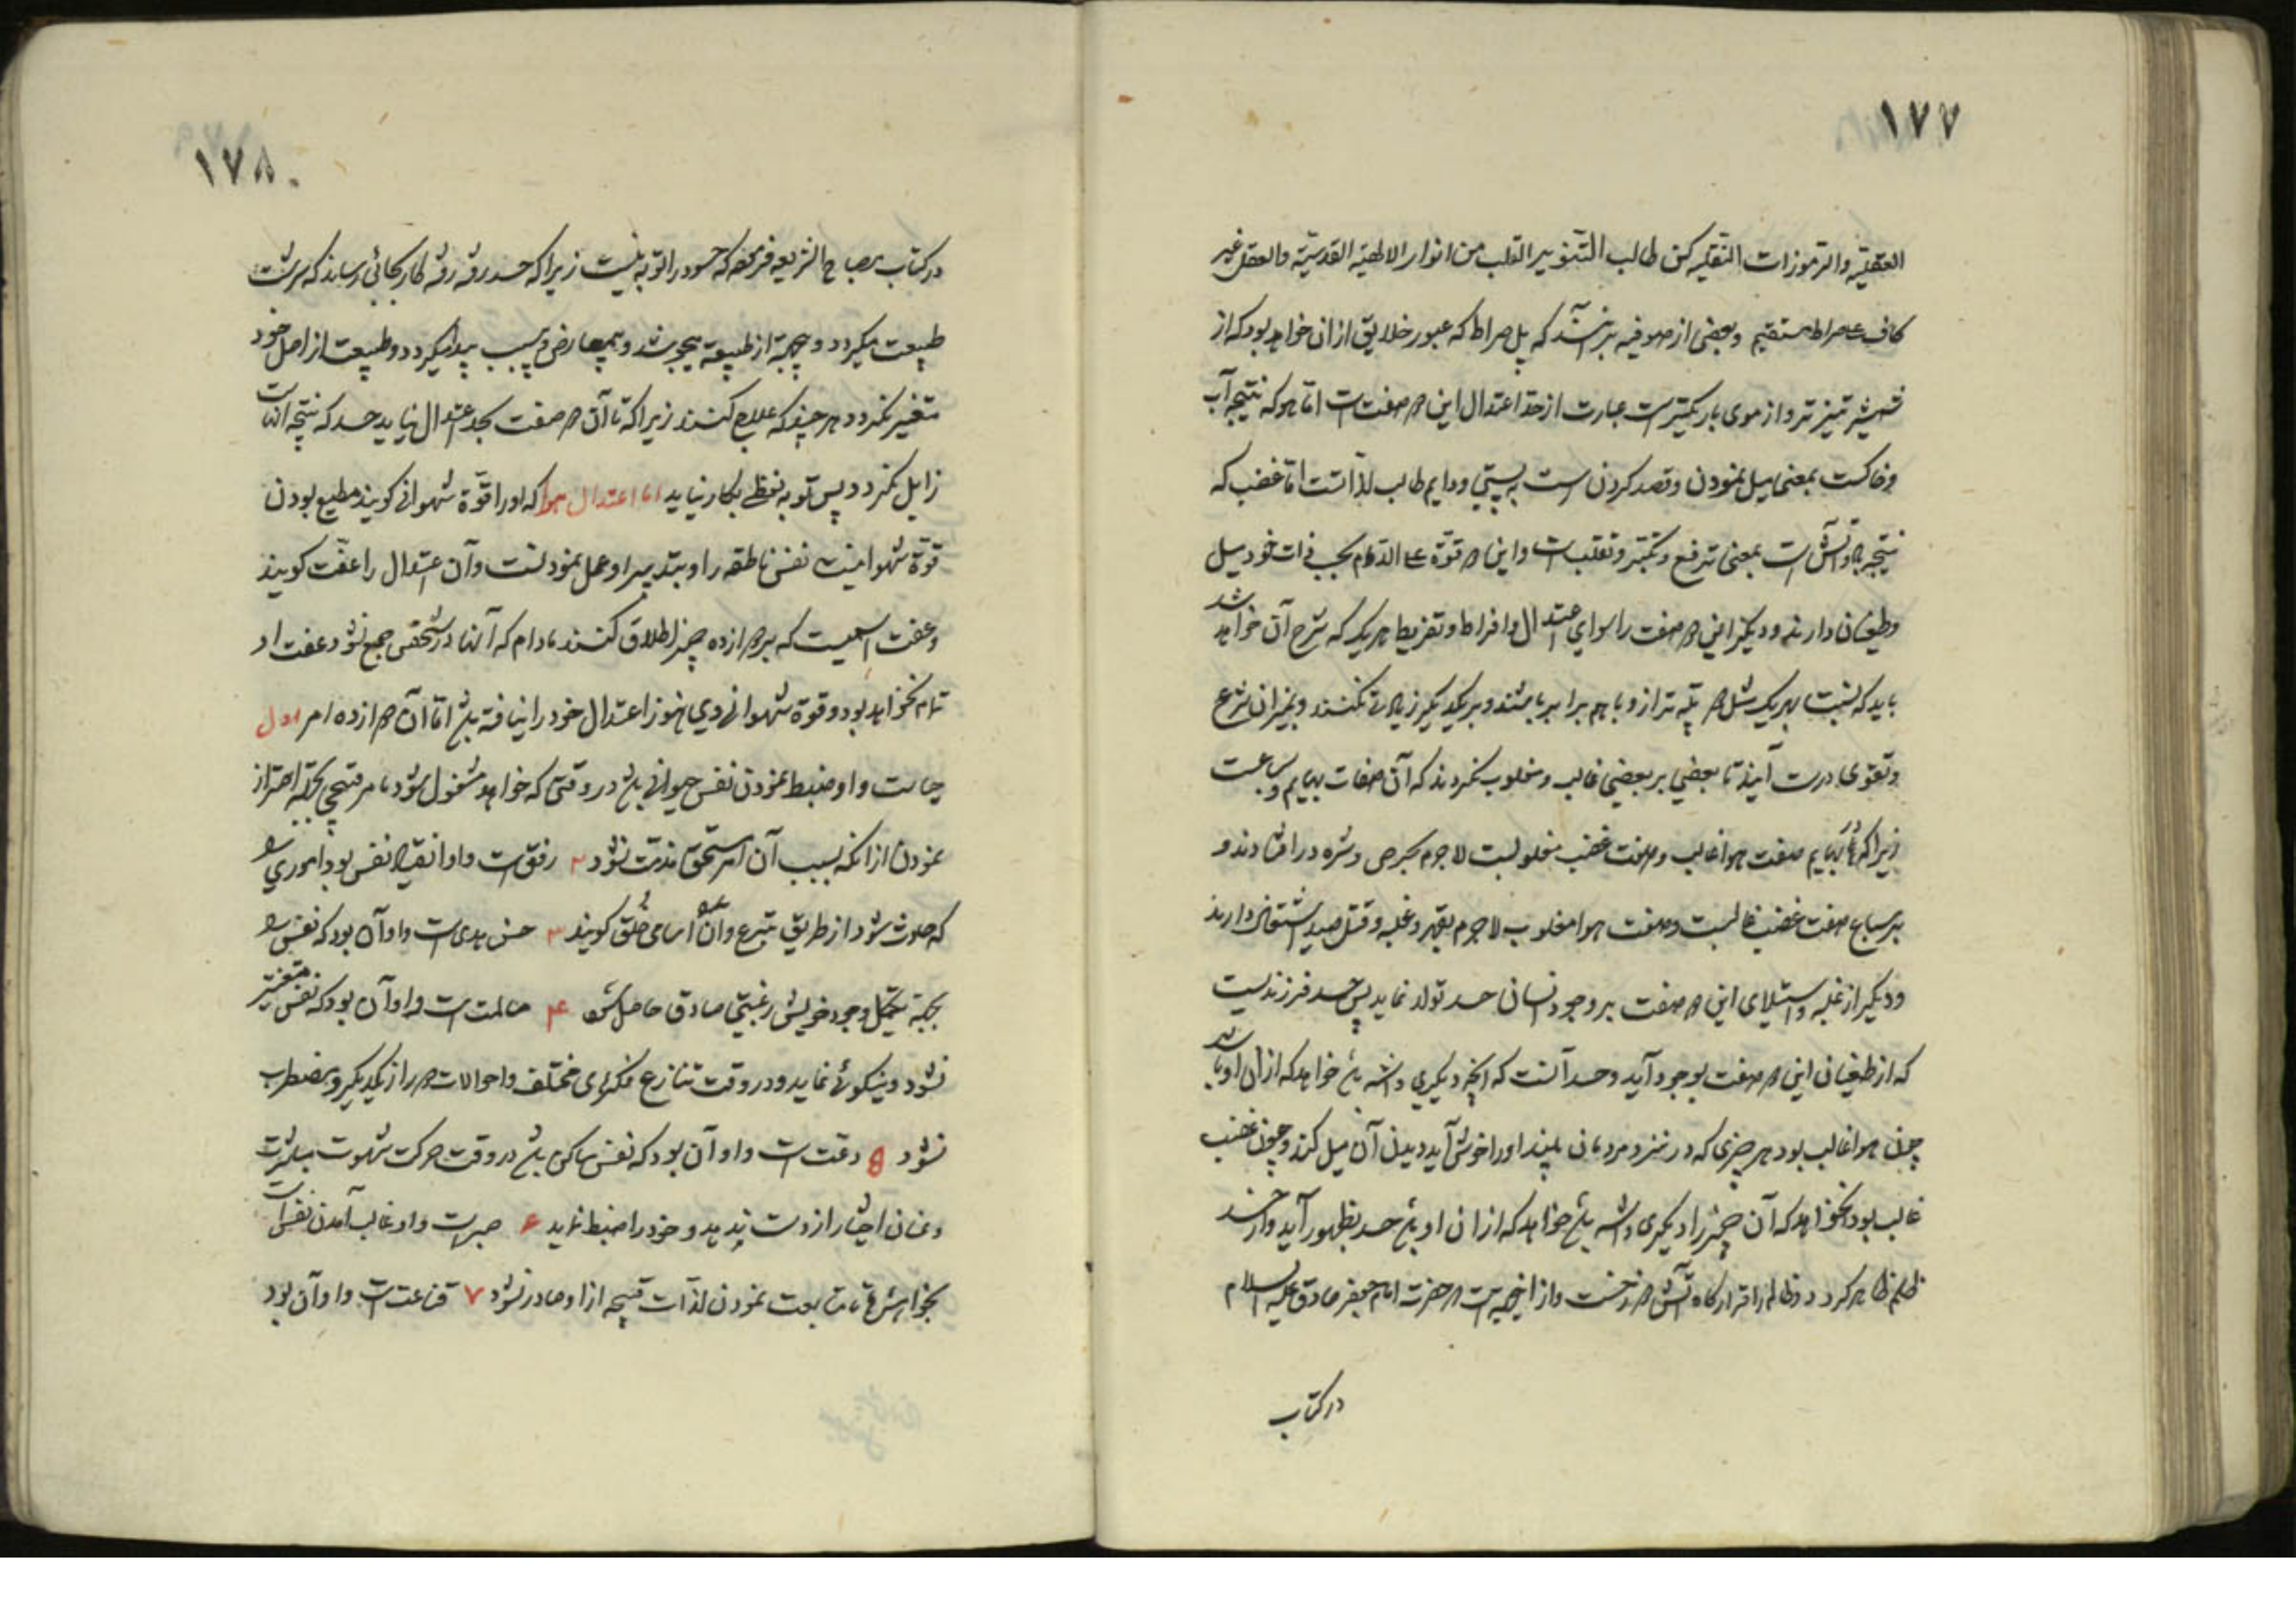 ١٧٧
العقلیّه والرموزات النقلیّه کن طالب التنویر القلب من انوار الالهیّة القدسیّة والعقل غیر
کاف علی صراط مستقیم وبعضی از صوفیه برانند که پل صراط که عبور خلایق از ان خواهد بود که از
شمشیر تیزتر و از موی باریکتر است عبارت از حد اعتدال این دو صفت است اما هوا که نتیجه آب
وخاکست بمعنی میل نمودن وقصد کردن است به پستی ودایم طالب لذّاتست اما غضب که
نتیجه باد و آتش است بمعنی ترفع و تکبّر و تغلّب است و این دو قوّة علی الدوام بحسب ذات خود میل
وطغیان دارند و دیگر این دو صفت را سوای اعتدال و افراط و تفریط هر یک که شرح آن خواهد شد
باید که نسبت بهر یک مثل دو پلّه ترازو با هم برابر باشند و بر یکدیگر زیادتی نکنند و بمیزان شرع
وتقوی درست آیند تا بعضی بر بعضی غالب و مغلوب نگردند که آن صفات بهایم و سباعست
زیراکه در بهایم صفت هوا غالب و صفت غضب مغلوبست لاجرم بحرص و شره در افتادند و
بر سباع صفت غضب غالبست و صفت هوا مغلوب لاجرم بقهر و غلبه و قتل و صید اشتغال دارند
ودیگر از غلبه و استیلای این دو صفت بر وجود انسان حسد تولد نماید پس حسد فرزندیست
که از طغیان این دو صفت بوجود آید و حسد آنست که آنچه دیگری داشته باشد خواهد که از ان او باشد
چون هوا غالب بود هر چیزی که در نزد مردمان بیند او را خوش آید و بدان میل کند و چون غضب
غالب بود نخواهد که آن چیز را دیگری داشته باشد خواهد که از ان او باشد حسد بظهور آید و از حسد
ظلم ظاهر گردد و ظالم را قرارگاه آتش دوزخست و از اینجهت است که حضرت امام جعفر صادق علیه السلام
در کتاب
١٧٨
در کتاب مصباح الشریعه فرموده که حسود را توبه نیست زیراکه حسد رفته رفته کار بجائی رساند که سرشت
طبیعت میگردد و بهیچ از طبیعت بیرون نشود و بمعارضی وسبب پیدا میگردد و طبیعت از اصل خود
متغیر نگردد هر چند که علاج کنند زیراکه تا آن دو صفت بحد اعتدال نیاید حسد که نتیجه آنهاست
زایل نگردد پس توبه لفظی بکار نیاید اما اعتدال هوا که او را قوّة شهوانی گویند مطیع بودن
قوّة شهوانیست نفس ناطقه را و بتدبیر او عمل نمودنست و آن اعتدال را عفّت گویند
وعفت اسمیست که بر دوازده چیز اطلاق کنند مادام که آنها در شخصی جمع نشود عفت او
تمام نخواهد بود و قوة شهوانی وی هنوز اعتدال خود را نیافته باشد اما آن دوازده امر اول
حیاست و او ضبط نمودن نفس حیوانی باشد در وقتی که خواهد مشغول شود بامر قبیحی بجهة احتراز
نمودن از انکه بسبب آن امر مستحق مذمّت نشود ٢ رفق است و او انقیاد نفس بود اموری را
که حادث شود از طریق تبرع وآن را سامی خلق گویند ٣ حسن هدی است و او آن بود که نفس را
بجهة تکمیل وجود خویش رغبتی صادق حاصل شود ۴ مسالمت است و او آن بود که نفس متغیر
نشود و نیکوئی نماید و در وقت تنازع فکرهای مختلف و احوالات دو از یکدیگر و مضطرب
نشود ۵ دعت است و او آن بود که نفس ساکن باشد در وقت حرکت شهوت بیشتر
وعنان اختیار از دست ندهد و خود را ضبط نماید ۶ صبر است و او غالب آمدن نفس است
بخواهشها تا متابعت نمودن لذّات قبیحه از او صادر نشود ٧ قناعت است و او آن بود